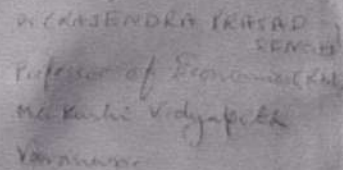 Dr. RAJENDRA PRASAD
SENGH
Professor of Economics
M.G. Kashi Vidyapith
Varanasi